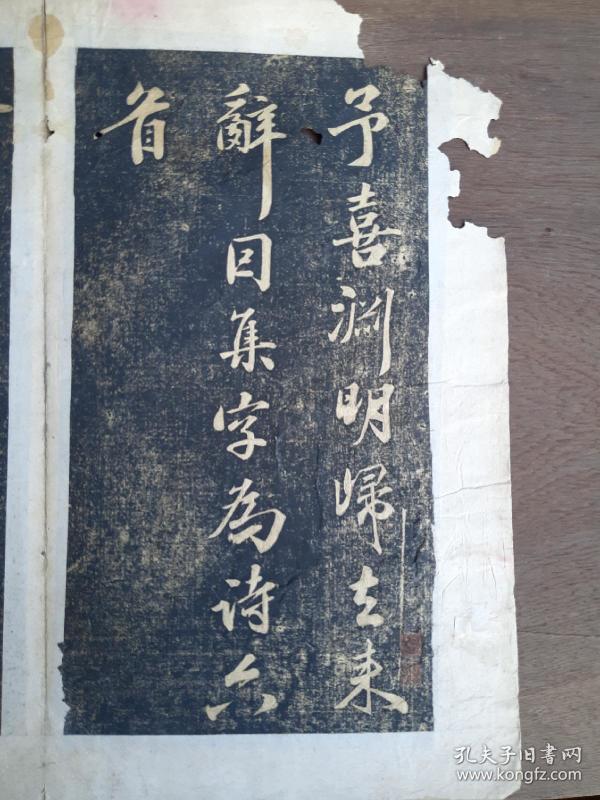 予喜渊明歸去来
辭因集字為诗六
首
孔夫子旧书网
www.kongfz.com